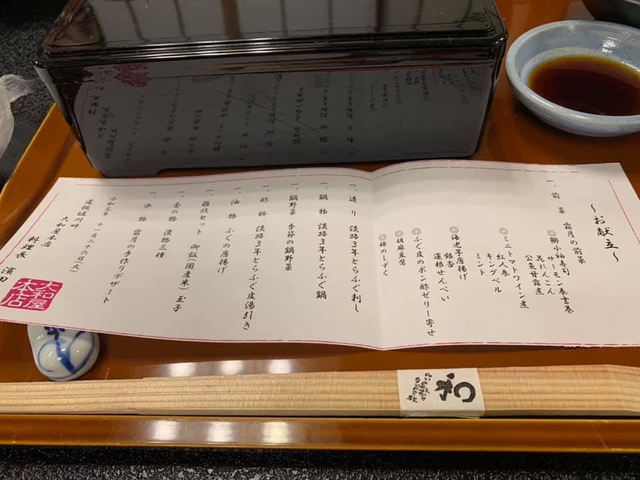 〜お献立〜
一、前菜 霜月の前菜
◎鯛小袖寿司
サーモン奉書巻
花れんこん
公魚甘露煮
◎ミニトマトワイン煮
紅心巻
キングベル
ミント
◎海老芋唐揚げ
銀杏
蓮根せんべい
◎ふぐ皮のポン酢ゼリー寄せ
◎胡麻豆腐
◎梅のしずく
一、造り 淡路3年とらふぐ刺し
一、鍋物 淡路3年とらふぐ鍋
一、鍋野菜 季節の鍋野菜
一、酢鉢 淡路3年とらふぐ皮湯引き
一、油物 ふぐの唐揚げ
一、雑炊セット 御飯(国産米)玉子
一、香の物 漬物三種
一、水物 霜月の手作りデザート
令和元年 十一月二十六日(火)
道後姫塚
大和屋本店
料理長 濱田
大和屋本店
和